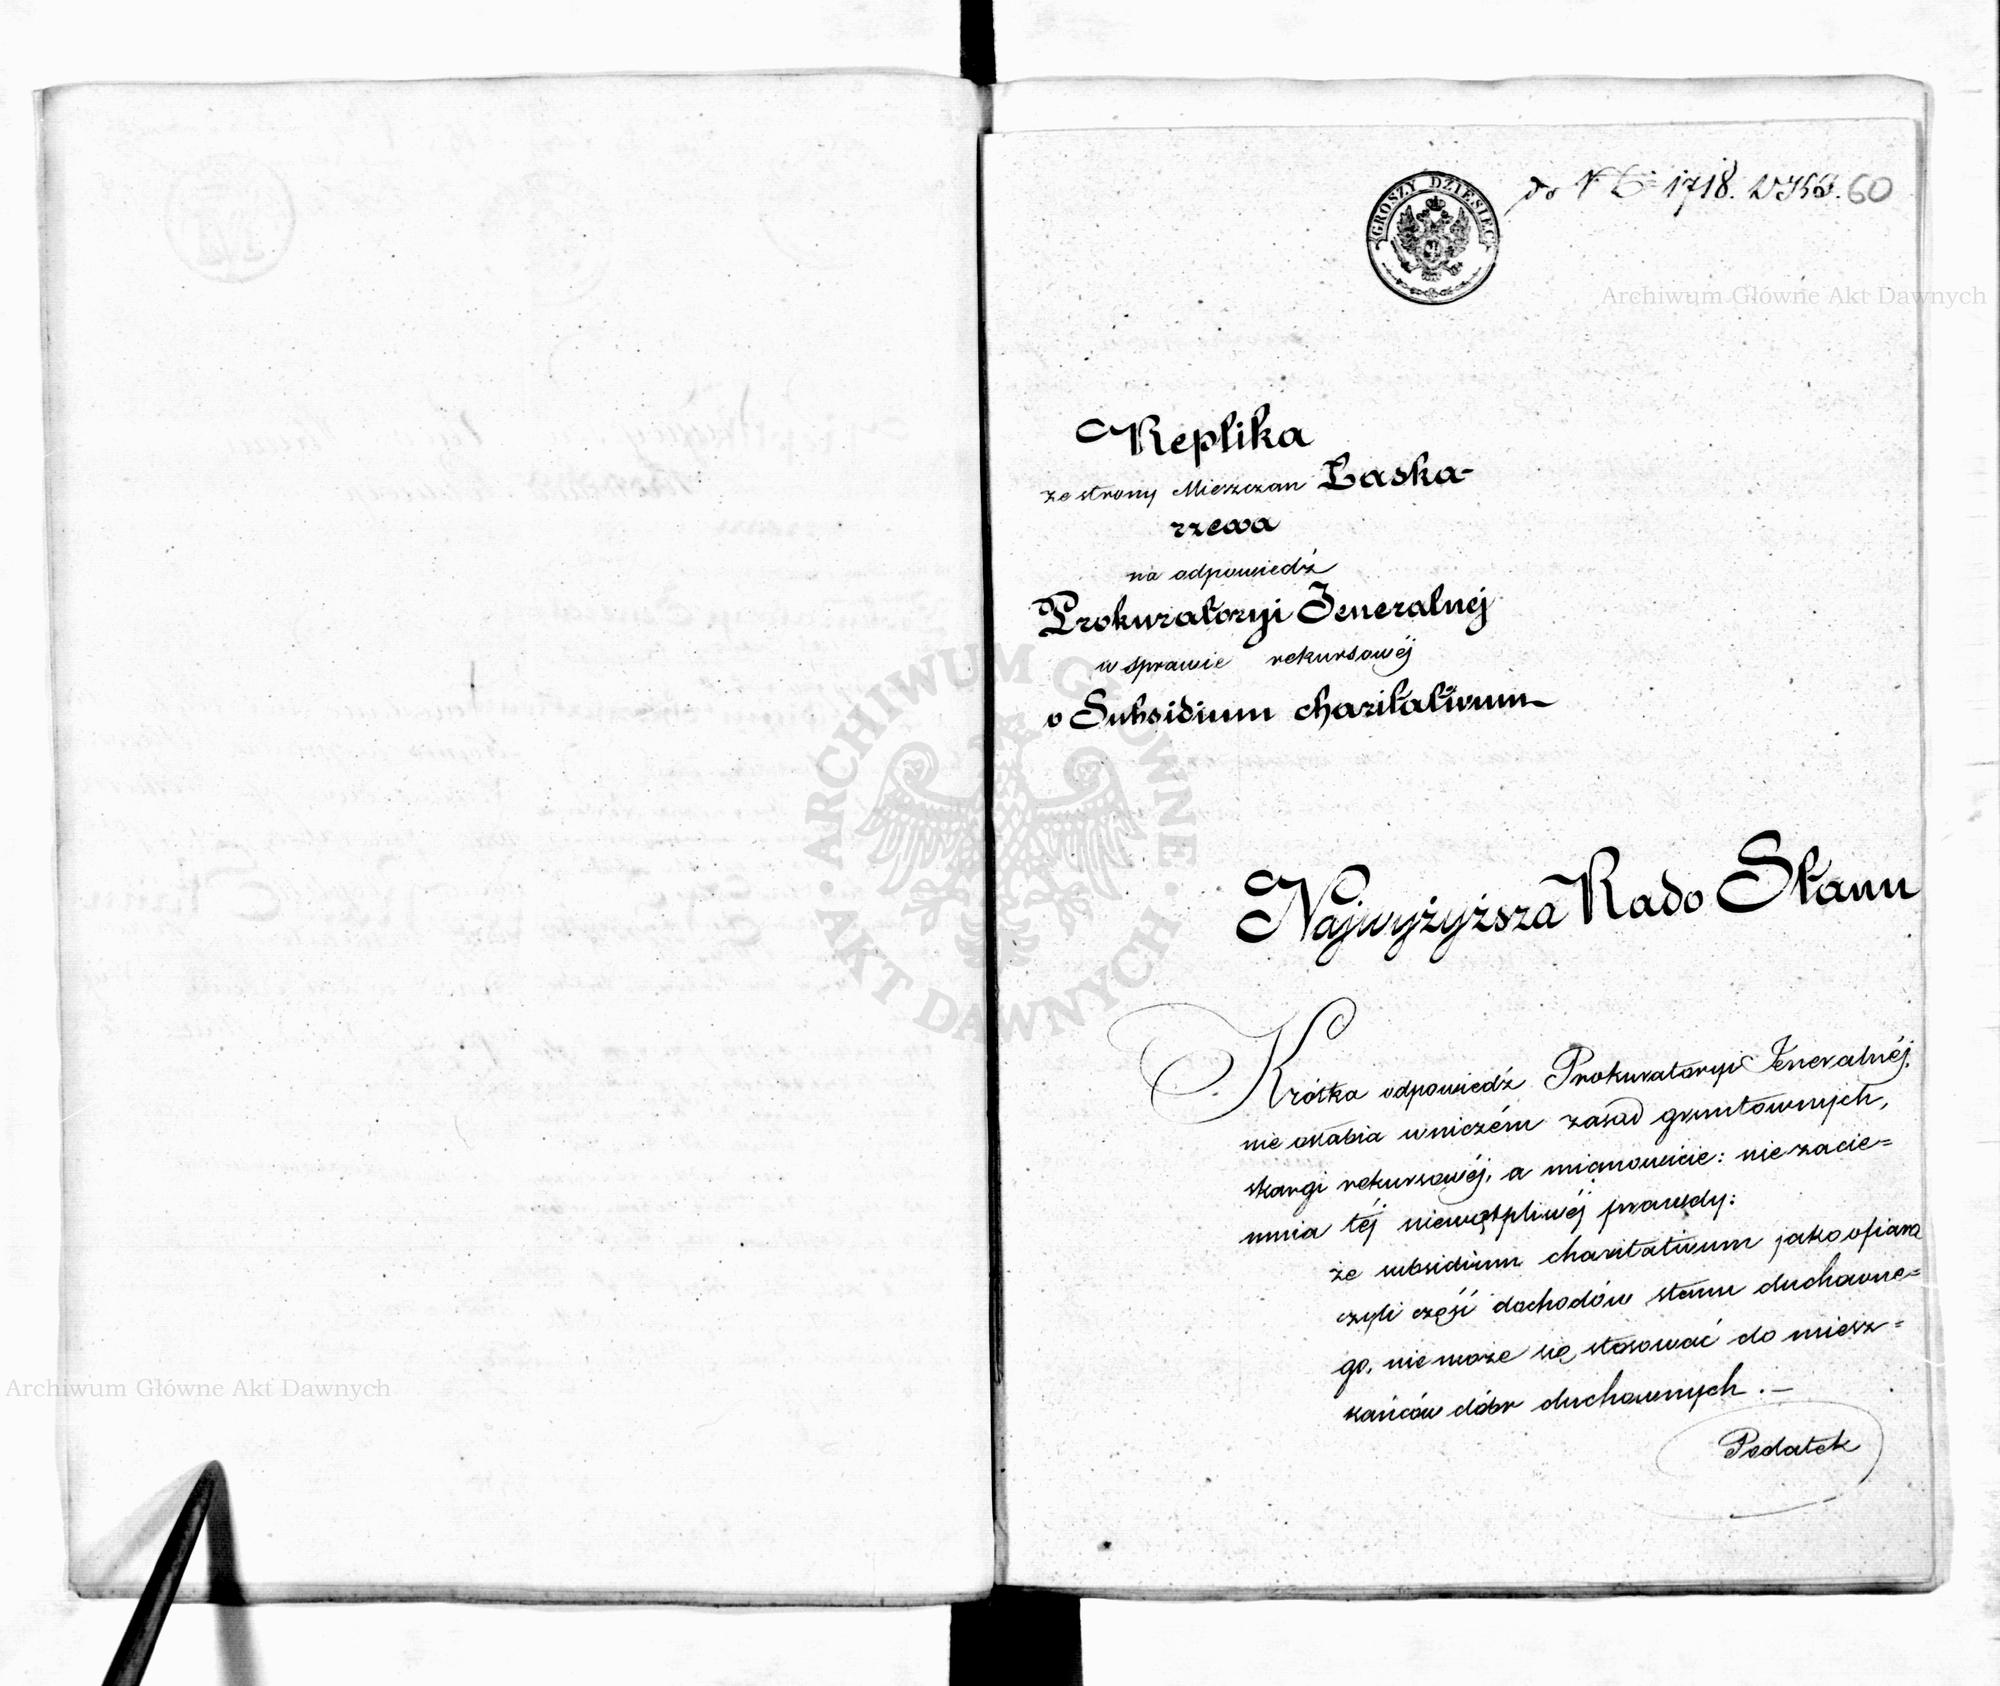 do N 1718. 60
GROSZY DZIESIĘĆ
Archiwum Główne Akt Dawnych
Replika
ze strony Mieszczan Laska-
rzewa
na odpowiedź
Prokuratoryi Jeneralnej
w sprawie rekursowéj
o Subsidium charitativum
ARCHIWUM GŁÓWNE AKT DAWNYCH
Najwyżyższa Rado Stanu
Krótka odpowiedź Prokuratoryi Jeneralnéj,
nie osłabia w niczém zasad gruntownych,
skargi rekursowéj, a mianowicie: nie zacie=
mnia téj niewątpliwéj prawdy:
że subsidium charitativum jako ofiara
czyli część dochodów stanu duchowne=
go, nie może się stosować do miesz=
kańców dóbr duchownych . —
Podatek
Archiwum Główne Akt Dawnych